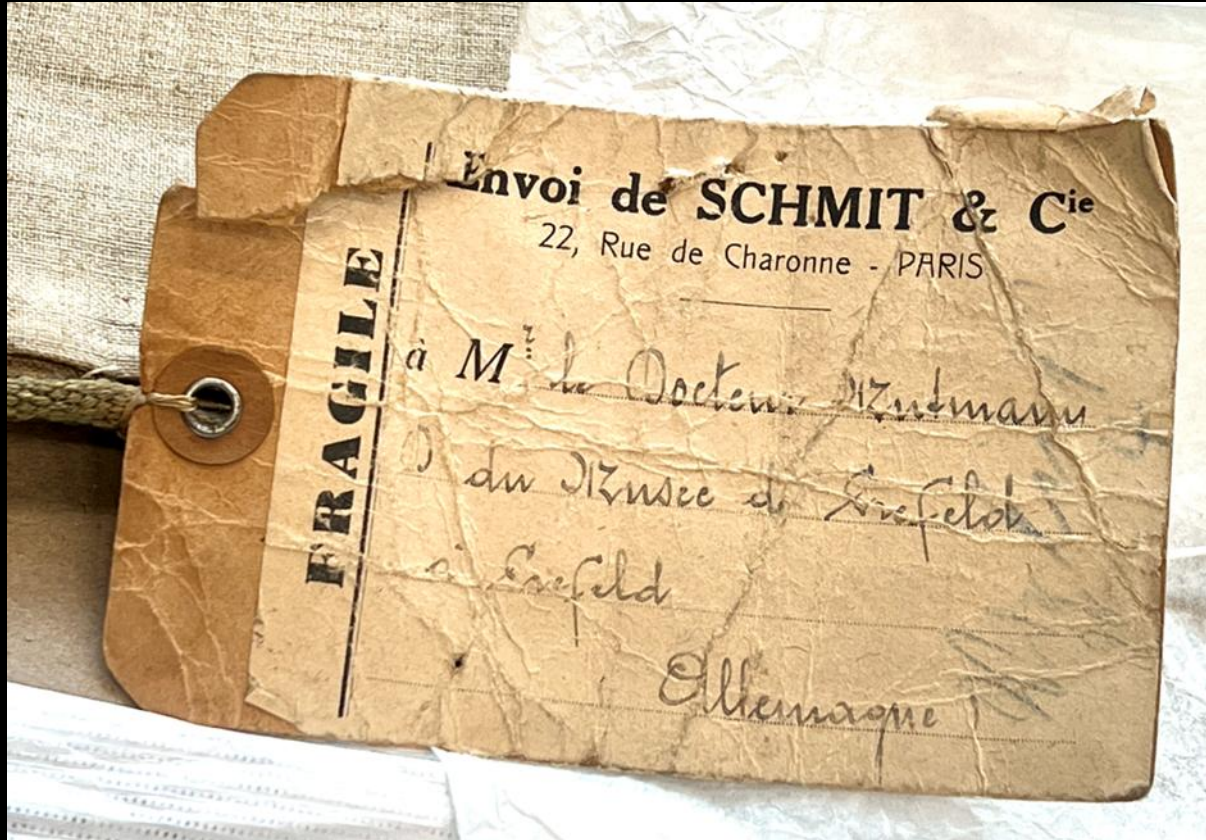 Envoi de SCHMIT & Cie
22, Rue de Charonne - PARIS
FRAGILE
à Mr le Docteur Mutmann
D du Musee de Crefeld
à Crefeld
Allemagne